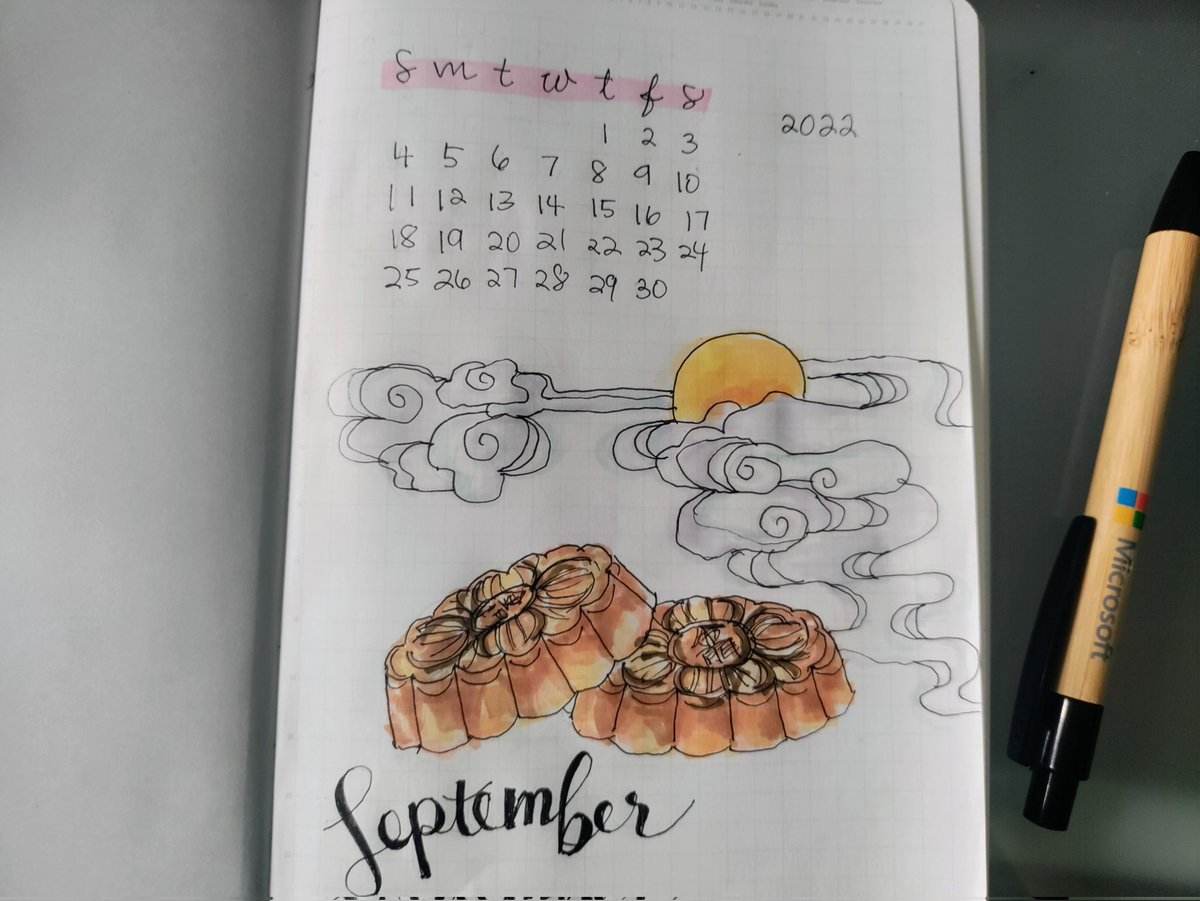 s m t w t f s
1 2 3
2022
4 5 6 7 8 9 10
11 12 13 14 15 16 17
18 19 20 21 22 23 24
25 26 27 28 29 30
September
Microsoft